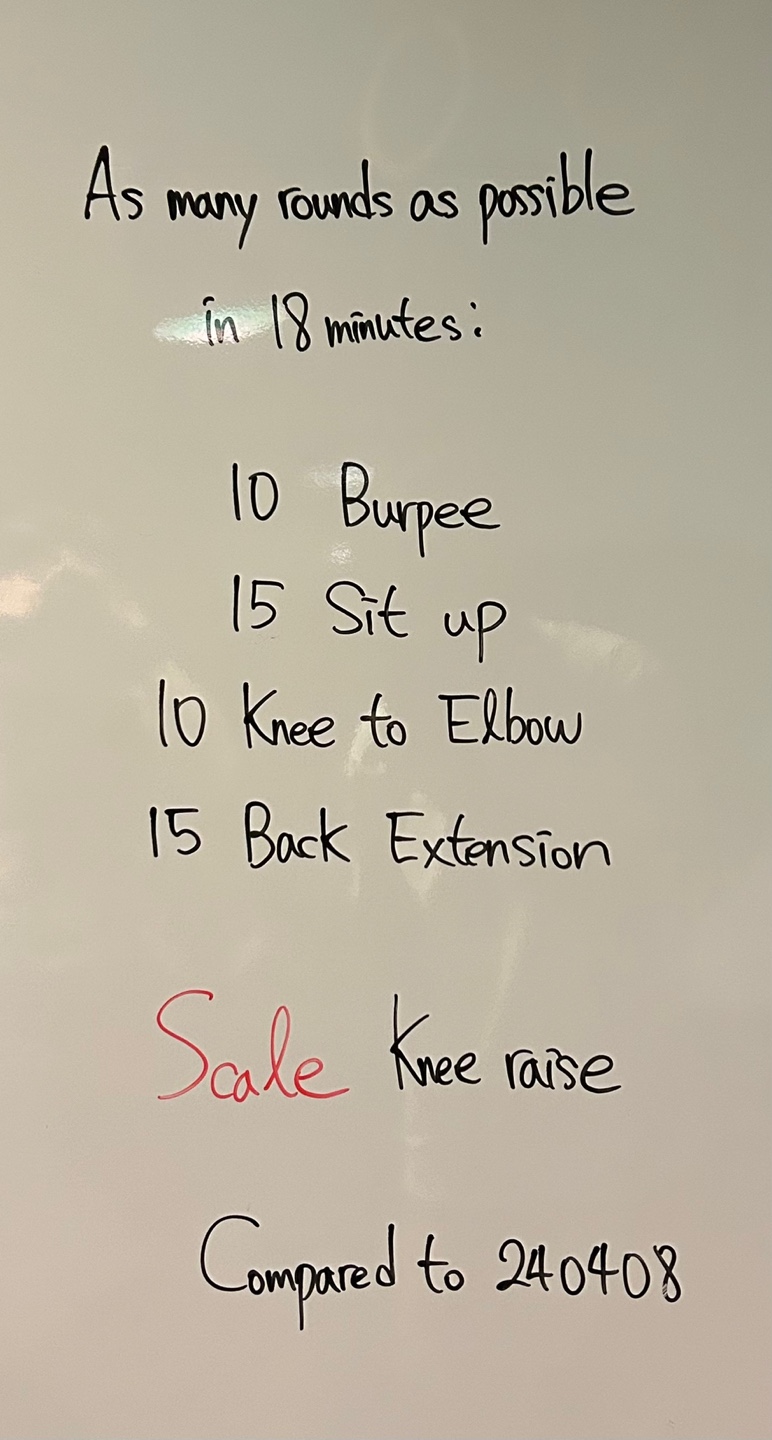 As many rounds as possible
in 18 minutes:
10 Burpee
15 Sit up
10 Knee to Elbow
15 Back Extension
Scale Knee raise
Compared to 240408